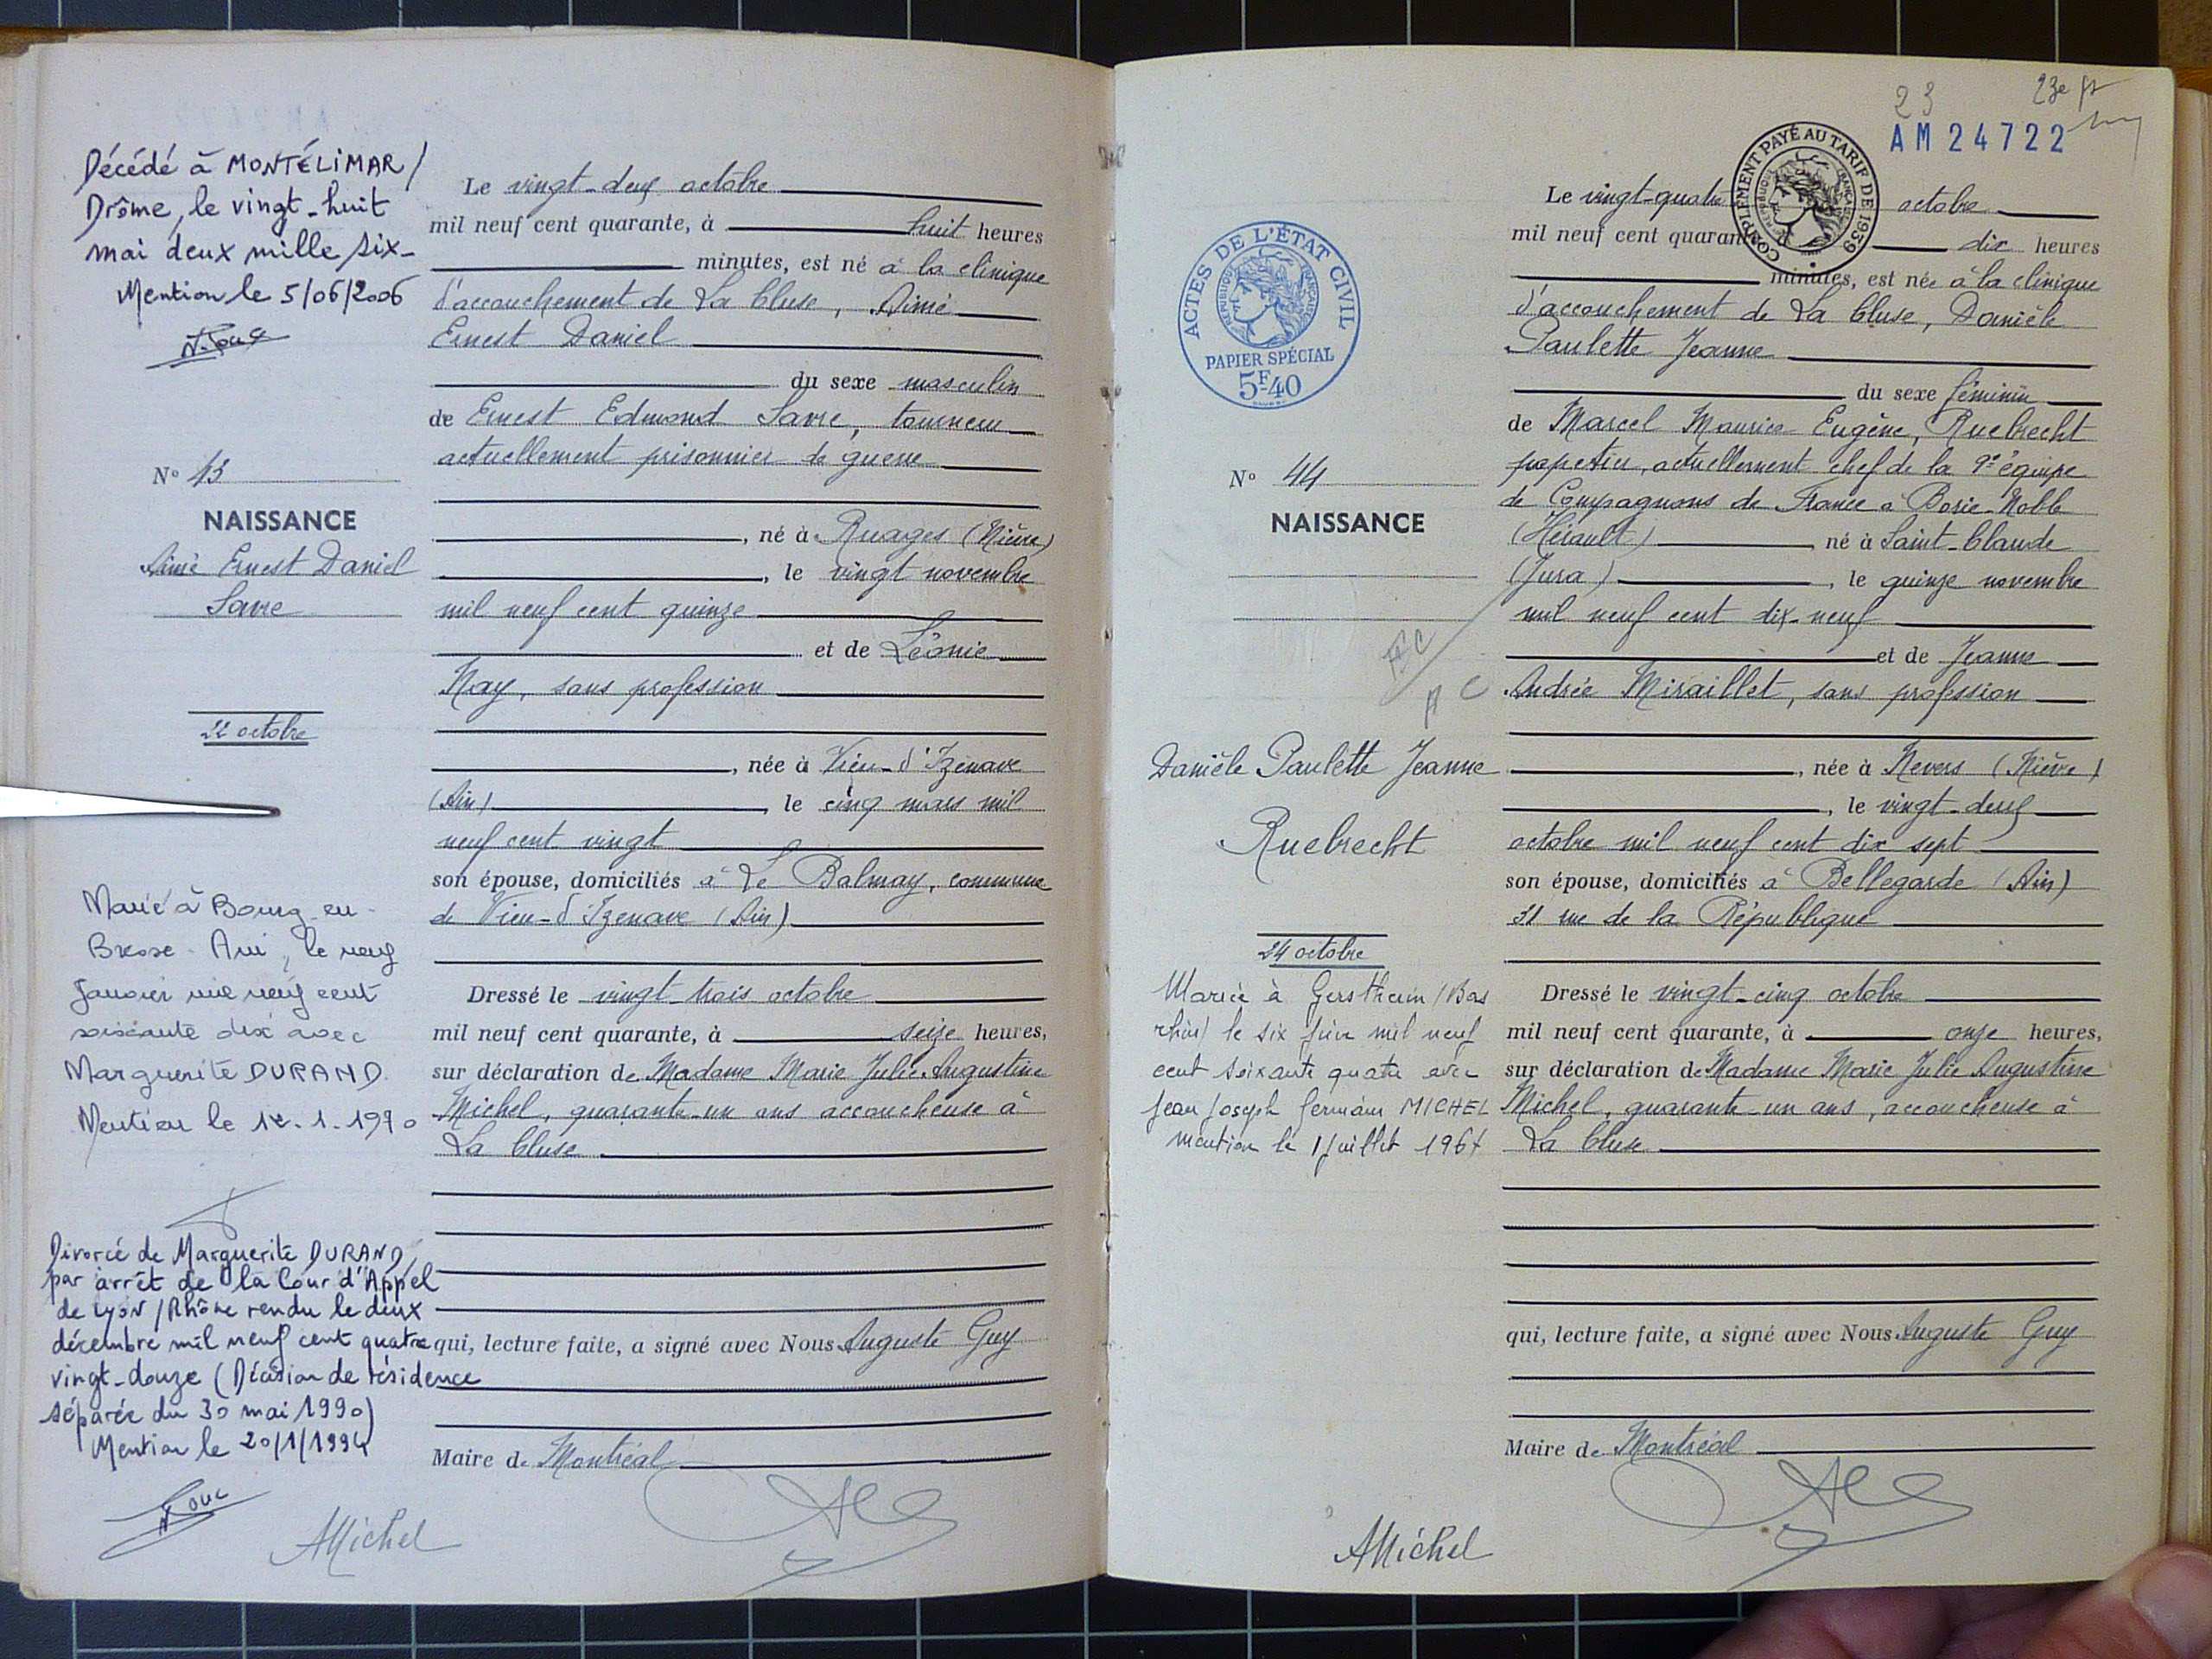 Décédé à MONTÉLIMAR /
Drôme, le vingt-huit
mai deux mille six-
Mention le 5/06/2006
N° 43
NAISSANCE
Aimé Ernest Daniel
Savre
22 octobre
Marié à Bourg-en-
Bresse - Ain, le neuf
Janvier mil neuf cent
soixante dix avec
Marguerite DURAND.
Mention le 12.1.1970
Divorcé de Marguerite DURAND,
par arrêt de la Cour d'Appel
de Lyon / Rhône rendu le deux
décembre mil neuf cent quatre
vingt-douze (Décision de résidence
séparée du 30 mai 1990)
Mention le 20/1/1994
Le vingt-deux octobre
mil neuf cent quarante, à huit heures
minutes, est né à la clinique
d'accouchement de La Cluse, Aimé
Ernest Daniel
du sexe masculin
de Ernest Edmond Savre, tourneur
actuellement prisonnier de guerre
, né à Ruages (Nièvre)
, le vingt novembre
mil neuf cent quinze
et de Léonie
Nay, sans profession
, née à Vieu-d'Izenave
(Ain) , le cinq mars mil
neuf cent vingt
son épouse, domiciliés à Le Balmay, commune
de Vieu-d'Izenave (Ain)
Dressé le vingt-trois octobre
mil neuf cent quarante, à seize heures,
sur déclaration de Madame Marie Julie Augustine
Michel, quarante-un ans accoucheuse à
La Cluse
qui, lecture faite, a signé avec Nous Auguste Guy
Maire de Montréal
AMichel
23
23e ft
AM 24722
COMPLÉMENT PAYÉ AU TARIF DE 1939
RÉPUBLIQUE FRANÇAISE
ACTES DE L'ÉTAT CIVIL
RÉPUBLIQUE FRANÇAISE
PAPIER SPÉCIAL
5F-40
N° 44
NAISSANCE
Danièle Paulette Jeanne
Ruebrecht
24 octobre
Mariée à Gerstheim (Bas
rhin) le six juin mil neuf
cent soixante quatre avec
Jean Joseph Germain MICHEL
mention le 1 juillet 1964
Le vingt-quatre octobre
mil neuf cent quarante, dix heures
minutes, est née à la clinique
d'accouchement de La Cluse, Danièle
Paulette Jeanne
du sexe féminin
de Marcel Maurice Eugène, Ruebrecht
papetier, actuellement chef de la 9e équipe
de Compagnons de France à Borie-Noble
(Hérault) né à Saint-Claude
(Jura) , le quinze novembre
mil neuf cent dix-neuf
et de Jeanne
Andrée Miraillet, sans profession
, née à Nevers (Nièvre)
, le vingt-deux
octobre mil neuf cent dix sept
son épouse, domiciliés à Bellegarde (Ain)
31 rue de la République
Dressé le vingt-cinq octobre
mil neuf cent quarante, à onze heures,
sur déclaration de Madame Marie Julie Augustine
Michel, quarante-un ans, accoucheuse à
La Cluse
qui, lecture faite, a signé avec Nous Auguste Guy
Maire de Montréal
AMichel